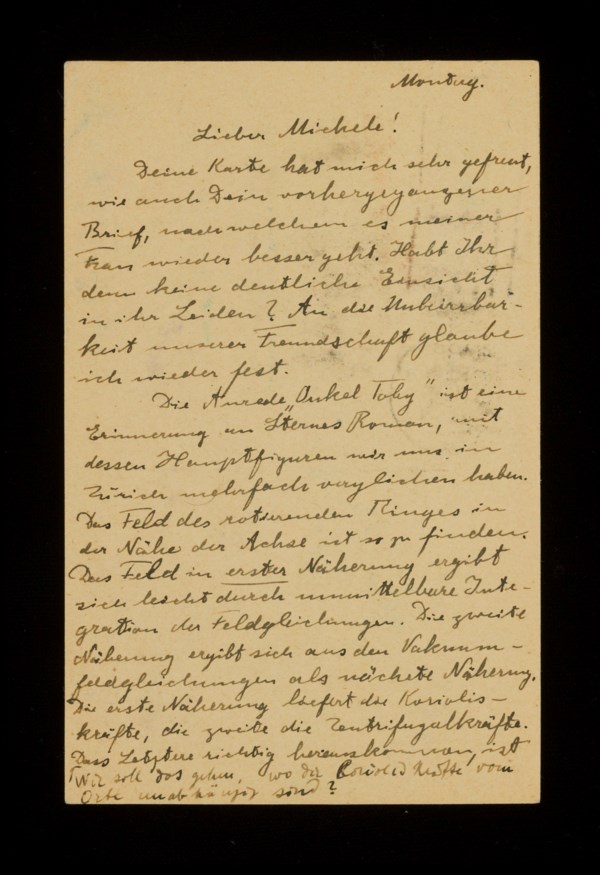 Montag.
Lieber Michele!
Deine Karte hat mich sehr gefreut,
wie auch Dein vorhergegangener
Brief, nach welchem es meiner
Frau wieder besser geht. Habt Ihr
denn keine deutliche Einsicht
in ihr Leiden? An die Unbeirrbar-
keit unserer Freundschaft glaube
ich wieder fest.
Die Anrede „Onkel Toby" ist eine
Erinnerung an Sternes Roman, mit
dessen Hauptfiguren wir uns in
Zürich mehrfach verglichen haben.
Das Feld des rotierenden Ringes in
der Nähe der Achse ist so zu finden.
Das Feld in erster Näherung ergibt
sich leicht durch unmittelbare Inte-
gration der Feldgleichungen. Die zweite
Näherung ergibt sich aus den Vakuum-
feldgleichungen als nächste Näherung.
Die erste Näherung liefert die Koriolis-
kräfte, die zweite die Zentrifugalkräfte.
Dass Letztere richtig herauskommen, ist
Wie soll das gehen, wo die Corioliskräfte vom
Orte unabhängig sind?